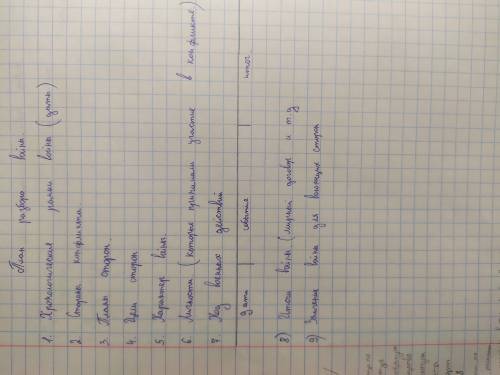 План разбора войны
1. Хронологические рамки войны (даты)
2. Стороны конфликта
3. Планы сторон
4. Цели сторон
5. Характер войны.
6. Личности (которые принимали участие в конфликте)
7. Ход военных действий
дата события итог
8) Итоги войны (мирный договор и т.д
9) Значение войны для воюющих сторон